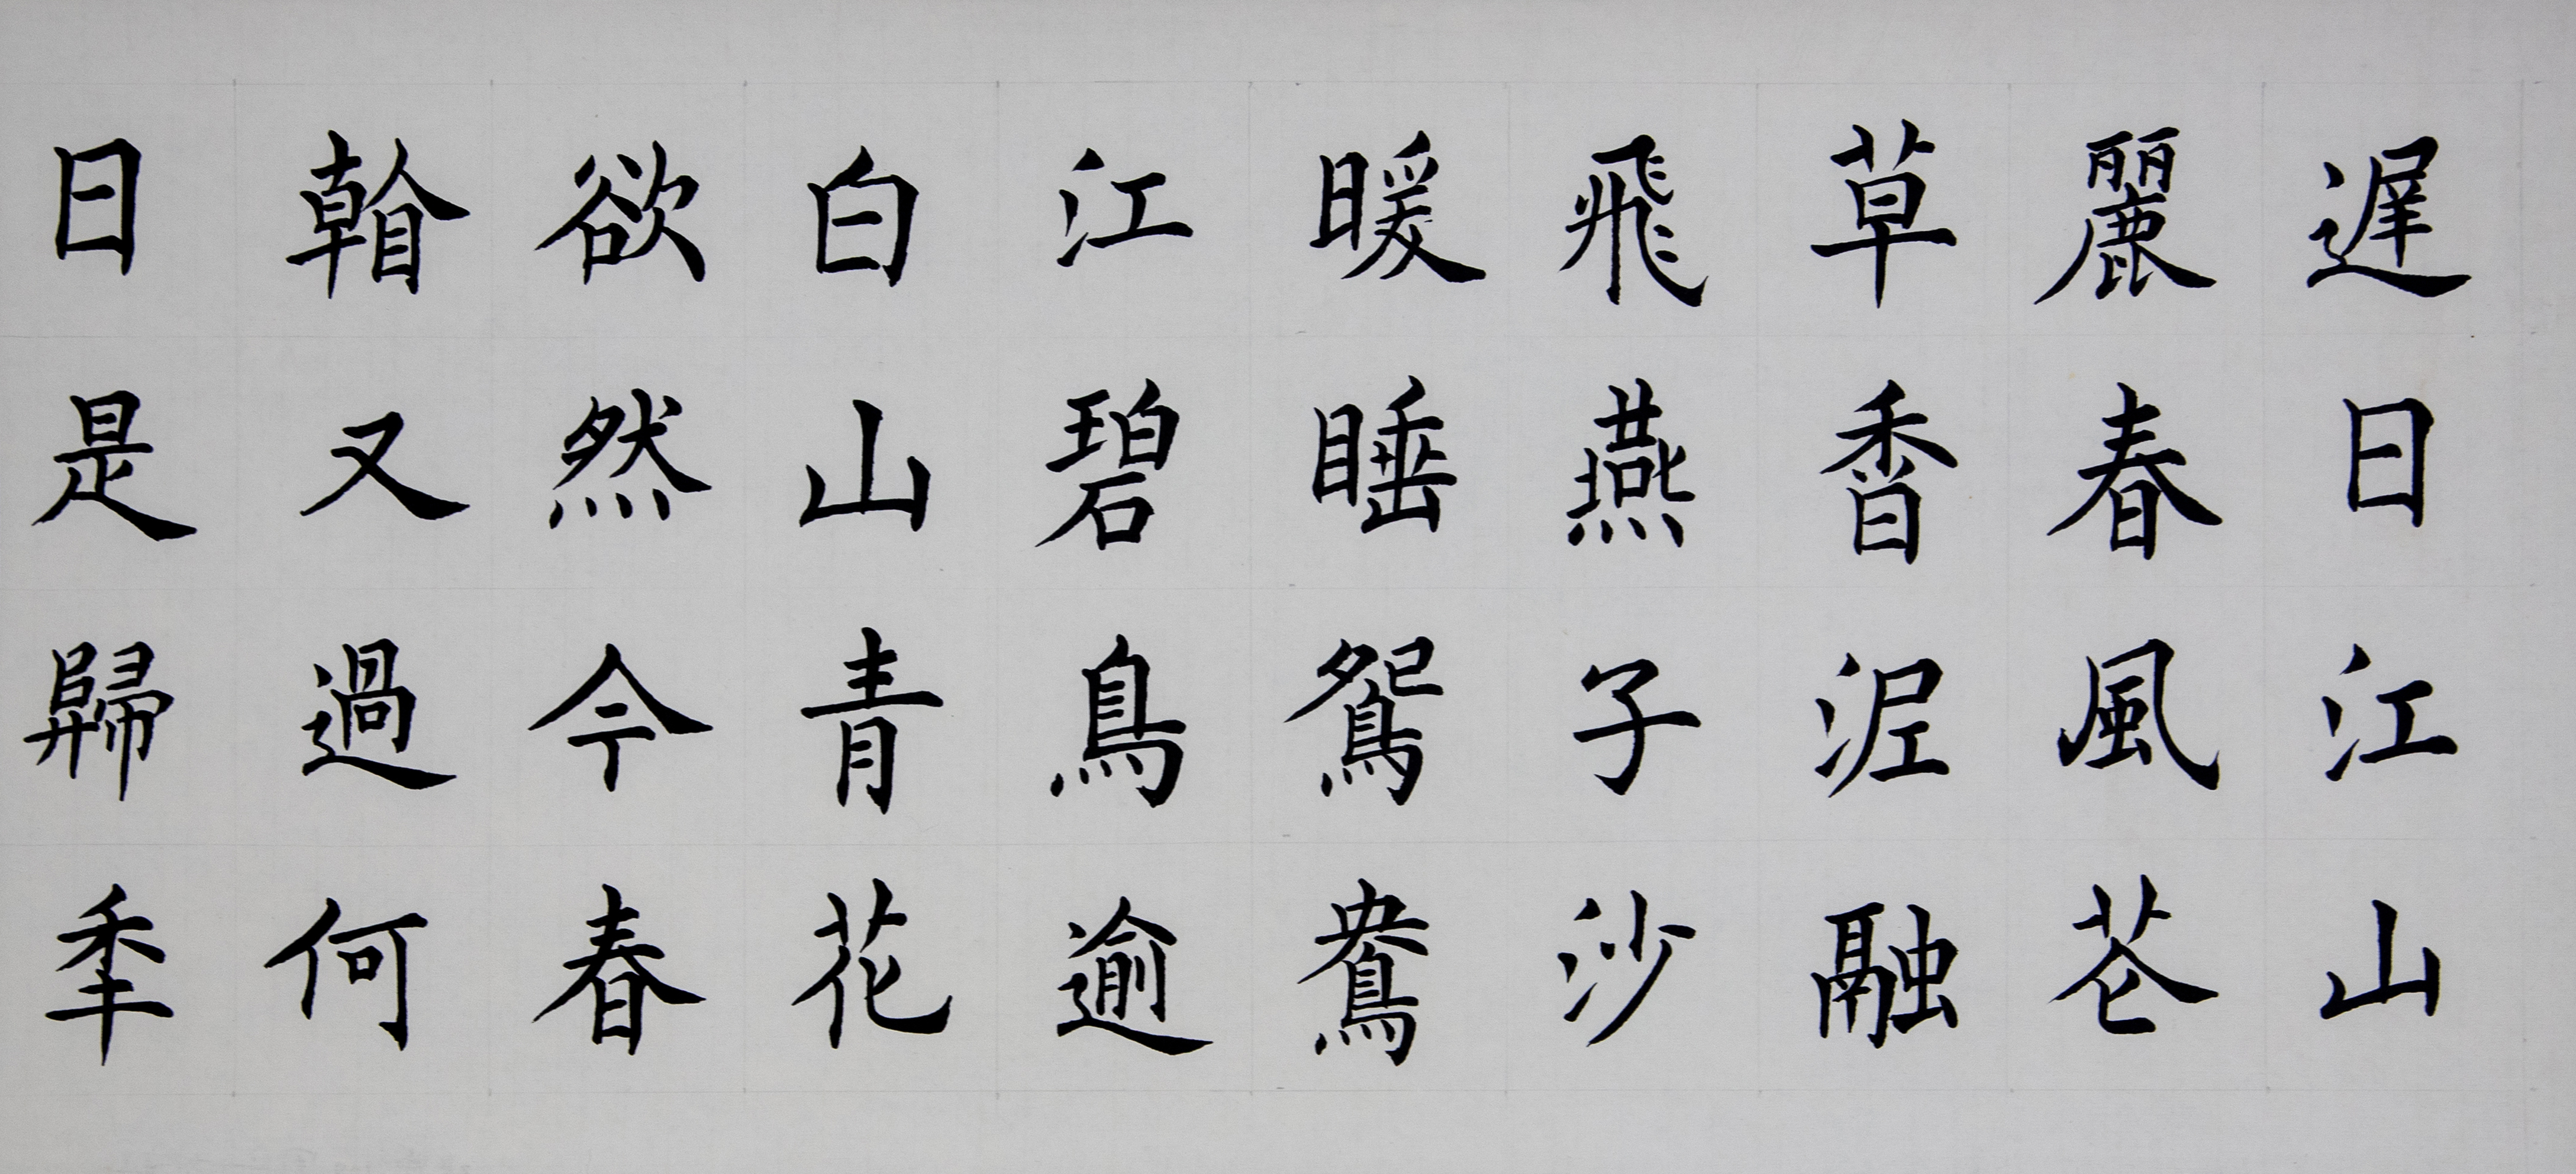 遲日江山
麗春風芲
草香泥融
飛燕子沙
暖睡鴛鴦
江碧鳥逾
白山青花
欲然今春
看又過何
日是歸秊